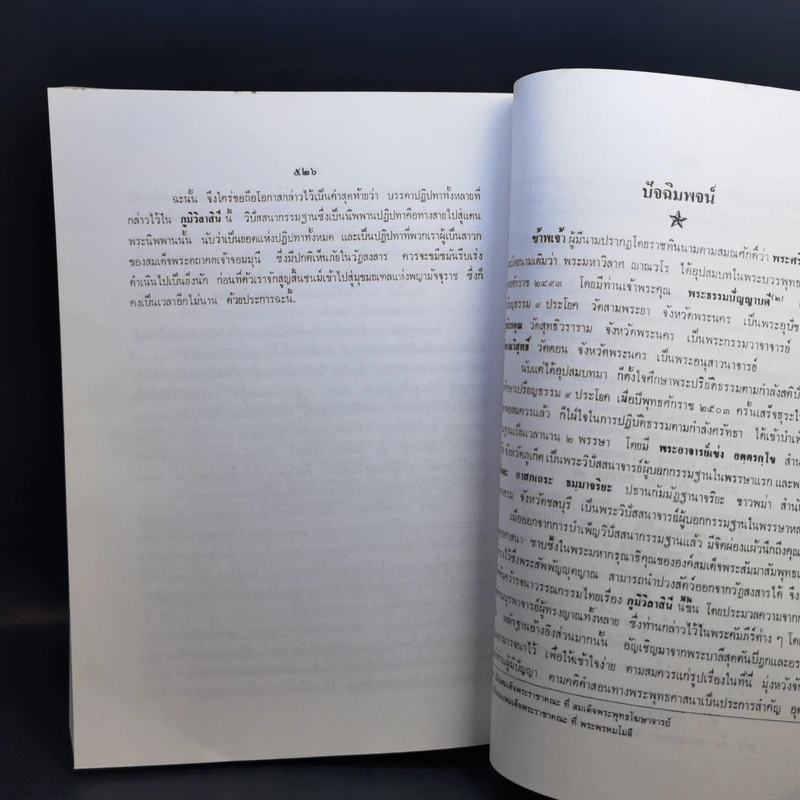 ๕๒๖
ฉะนั้น จึงใคร่ขอถือโอกาสกล่าวไว้เป็นคำสุดท้ายว่า บรรดาปฏิปทาทั้งหลายที่
กล่าวไว้ใน ภูมิวิลาสินี นี้ วิปัสสนากรรมฐานซึ่งเป็นนิพพานปฏิปทาคือทางสายไปสู่แดน
พระนิพพานนั้น นับว่าเป็นยอดแห่งปฏิปทาทั้งหมด และเป็นปฏิปทาที่พวกเราผู้เป็นสาวก
ของสมเด็จพระตถาคตเจ้าจอมมุนี ซึ่งมีปกติเห็นภัยในวัฏสงสาร ควรจะขมีขมันรีบเร่ง
ดำเนินไปเป็นยิ่งนัก ก่อนที่ตัวเราจักสูญสิ้นชนม์เข้าไปสู่มุขมณฑลแห่งพญามัจจุราช ซึ่งก็
คงเป็นเวลาอีกไม่นาน ด้วยประการฉะนี้.
ปัจฉิมพจน์
ข้าพเจ้า ผู้มีนามปรากฏโดยราชทินนามตามสมณศักดิ์ว่า พระศรี
โดยนามเดิมว่า พระมหาวิลาศ ญาณวโร ได้อุปสมบทในพระบวรพุทธ
ศักราช ๒๔๙๓ โดยมีท่านเจ้าพระคุณ พระธรรมปัญญาบดี(๒)
ธรรม ๙ ประโยค วัดสามพระยา จังหวัดพระนคร เป็นพระอุปัช
วัดสุทธิวราราม จังหวัดพระนคร เป็นพระกรรมวาจาจารย์
วัดดอน จังหวัดพระนคร เป็นพระอนุสาวนาจารย์
นับแต่ได้อุปสมบทมา ก็ตั้งใจศึกษาพระปริยัติธรรมตามกำลังสติปั
ศึกษาเปรียญธรรม ๙ ประโยค เมื่อปีพุทธศักราช ๒๕๐๓ ครั้นเสร็จธุระ
พอสมควรแล้ว ก็ใฝ่ใจในการปฏิบัติธรรมตามกำลังศรัทธา ได้เข้าบำเ
ฐานเป็นเวลานาน ๒ พรรษา โดยมี พระอาจารย์เข่ง อตฺตรกฺโข สำน
จังหวัดภูเก็ต เป็นพระวิปัสสนาจารย์ผู้บอกกรรมฐานในพรรษาแรก และพ
อาสภเถระ ธมฺมาจริยะ ปธานกัมมัฏฐานาจริยะ ชาวพม่า สำนั
จังหวัดชลบุรี เป็นพระวิปัสสนาจารย์ผู้บอกกรรมฐานในพรรษาหล
เมื่อออกจากการบำเพ็ญวิปัสสนากรรมฐานแล้ว มีจิตผ่องแผ้วนึกถึงคุณ
ศาสนา ซาบซึ้งในพระมหากรุณาธิคุณขององค์สมเด็จพระสัมมาสัมพุทธเ
ซึ่งพระสัพพัญญุตญาณ สามารถนำปวงสัตว์ออกจากวัฏสงสารได้ จึง
รจนาวรรณกรรมไทยเรื่อง ภูมิวิลาสินี นี้ขึ้น โดยประมวลความจาก
บุรพาจารย์ผู้ทรงญาณทั้งหลาย ซึ่งท่านกล่าวไว้ในพระคัมภีร์ต่าง ๆ โด
หลักฐานอ้างอิงส่วนมากนั้น อัญเชิญมาจากพระบาลีสุตตันปิฎกและอร
จนาไว้ เพื่อให้เข้าใจง่าย ตามสมควรแก่รูปเรื่องในที่นี้ มุ่งหวังจั
ท่านผู้มีปัญญา ตามคติคำสอนทางพระพุทธศาสนาเป็นประการสำคัญ อุต
เป็นสมเด็จพระราชาคณะ ที่ สมเด็จพระพุทธโฆษาจารย์
สมเด็จพระราชาคณะ ที่ พระพรหมโมลี